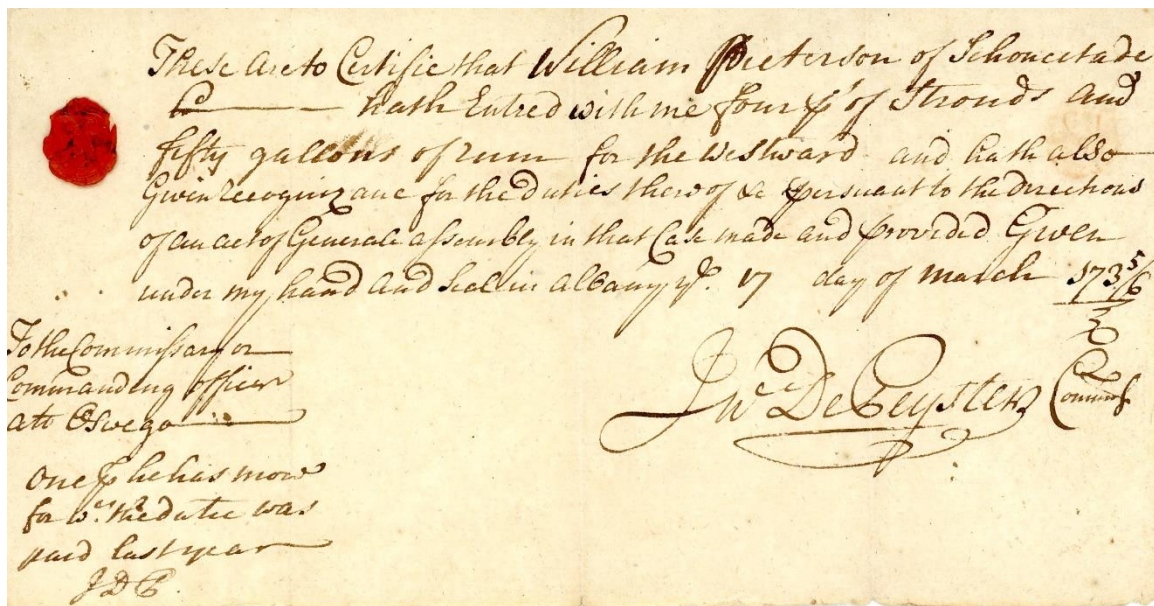 These are to Certifie that William Pieterson of Schonectade
hath Entred with me four ps of Strouds and
fifty gallons of rum for the westward and hath also
Givin recognizance for the duties therof &c persuant to the directions
of an act of Generale assembly in that Case made and provided Given
under my hand and seal in albany ye. 17 day of march 1735/6
Jno De Peyster Commisr
To the Commissary or
Commanding officer
att Oswego
One ps he has more
for wch. the dutie was
paid last year
J D P.